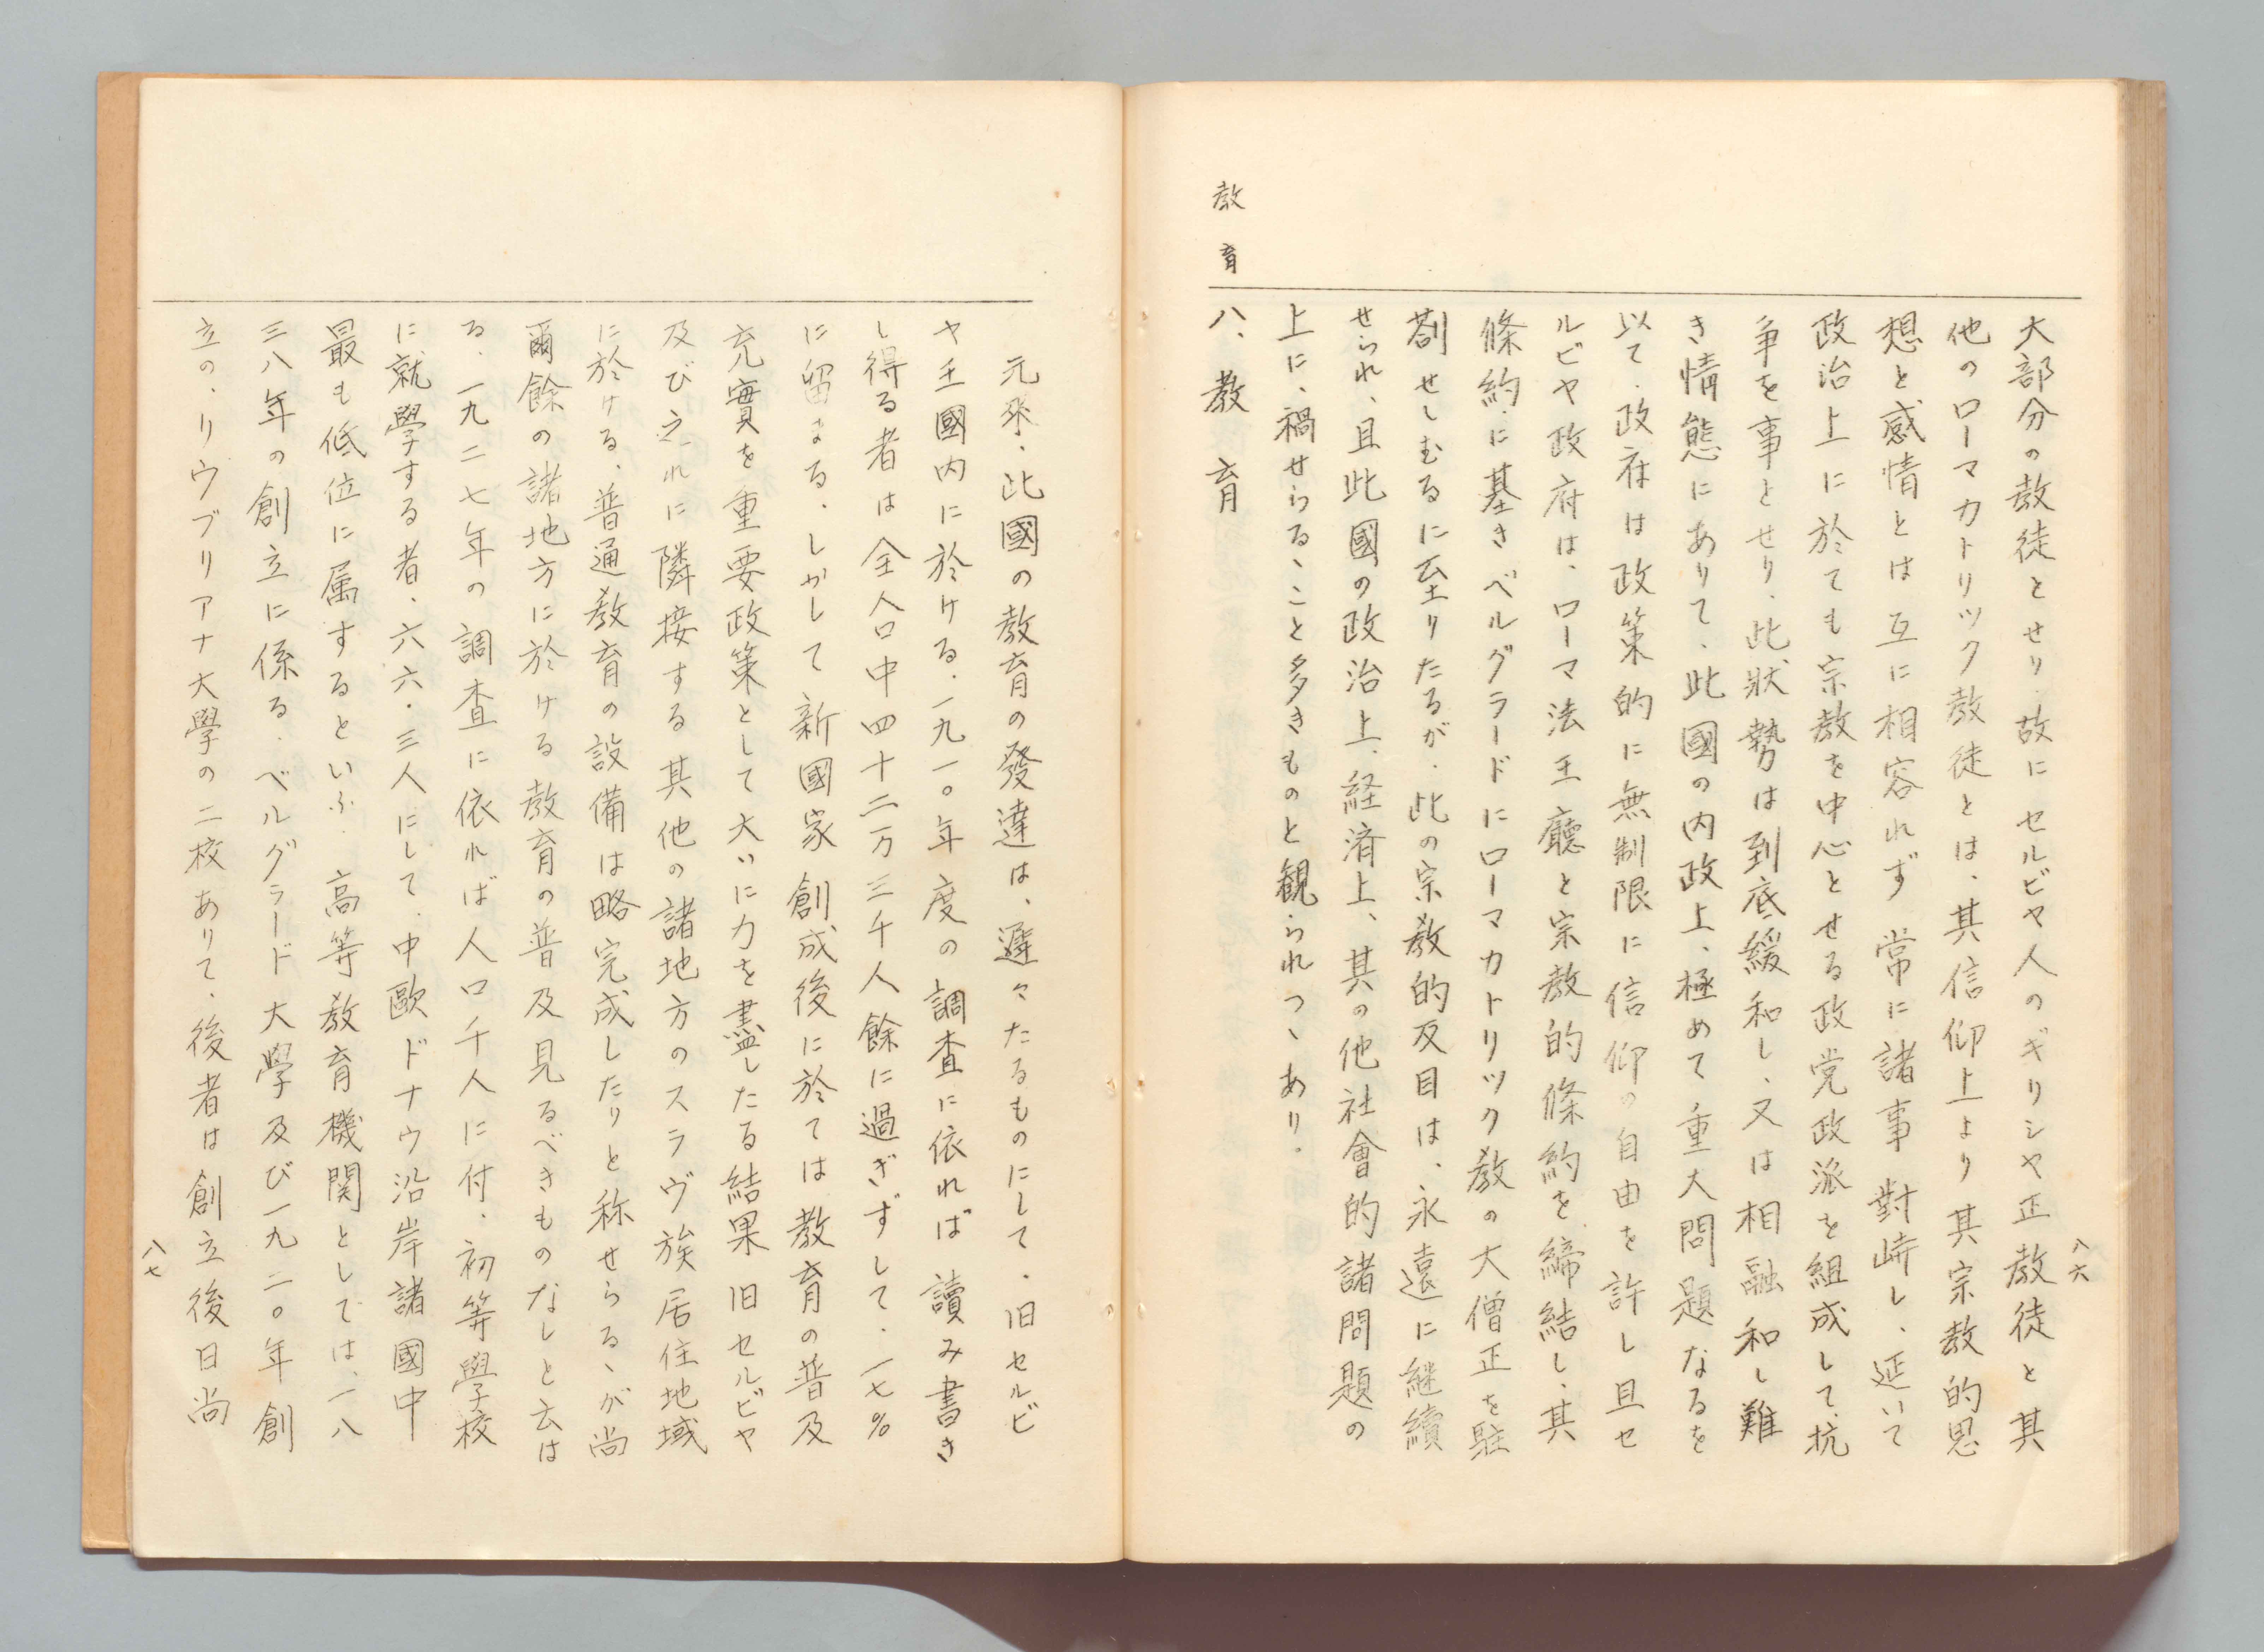 八六
大部分の教徒とせり．故にセルビヤ人のギリシヤ正教徒と其
他のローマカトリック教徒とは、其信仰上より其宗教的思
想と感情とは互に相容れず常に諸事對峙し、延いて
政治上に於ても宗教を中心とせる政党政派を組成して抗
争を事とせり、此狀勢は到底緩和し、又は相融和し難
き情態にありて、此國の内政上、極めて重大問題なるを
以て、政府は政策的に無制限に信仰の自由を許し且セ
ルビヤ政府は、ローマ法王廳と宗教的條約を締結し、其
條約に基きベルグラードにローマカトリック教の大僧正を駐
剳せしむるに至りたるが、此の宗教的反目は、永遠に継續
せられ、且此國の政治上、経済上、其の他社會的諸問題の
上に、禍せらるゝこと多きものと観られつゝあり．
教育
八、教育
元來、此國の教育の發達は、遲々たるものにして、旧セルビ
ヤ王國内に於ける、一九一〇年度の調査に依れば讀み書き
し得る者は全人口中四十二万三千人餘に過ぎずして、一七％
に留まる、しかして新國家創成後に於ては教育の普及
充實を重要政策として大いに力を盡したる結果旧セルビヤ
及び之れに隣接する其他の諸地方のスラヴ族居住地域
に於ける、普通教育の設備は略完成したりと称せらるゝが尚
爾餘の諸地方に於ける教育の普及見るべきものなしと云は
る、一九二七年の調査に依れば人口千人に付、初等學校
に就學する者、六六・三人にして、中歐ドナウ沿岸諸國中
最も低位に属するといふ．高等教育機関としては、一八
三八年の創立に係る、ベルグラード大學及び一九二〇年創
立の、リウブリアナ大學の二校ありて、後者は創立後日尚
八七